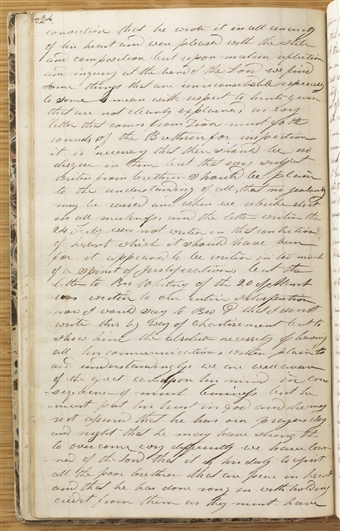 34.
conviction that he wrote it in all sincerity
of his heart and were pleased with the stile
and composition but upon mature reflection
and inquiry at the hand of the Lord we find
some things that are unreconcilable especially
to some I mean with respect to hints given
that are not clearly explained as every
letter that comes from Zion must go the
rounds of the Brethren for inspection
it is necessary that there should be no
disguise in them but that every subject
written from brethren should be plain
to the understanding of all, that no jealousy
may be raised and when we rebuke do it
in all meekness and the letter written the
24 July was not written in that contrition
of heart which it should have been
for it appeared to be written in too much
of a spirit of justification but the
letter to Bro Whitney of the 20 of Sept
was written to our entire satisfaction
now I would say to Bro that I do not
write this by way of Chastisement but to
show him the absolute necessity of having
all his communications written plain to
and understandingly we are well aware
of the great care upon his mind in con
sequence of much business but he
must put his trust in god and he may
rest assured that he has our prayers day
and night that he may have strength
to overcome every difficulty we have lear
ned of the Lord that it is his duty to assist
all the poor brethren that are pure in heart
and that he has done wrong in withholding
credit from them as they must have